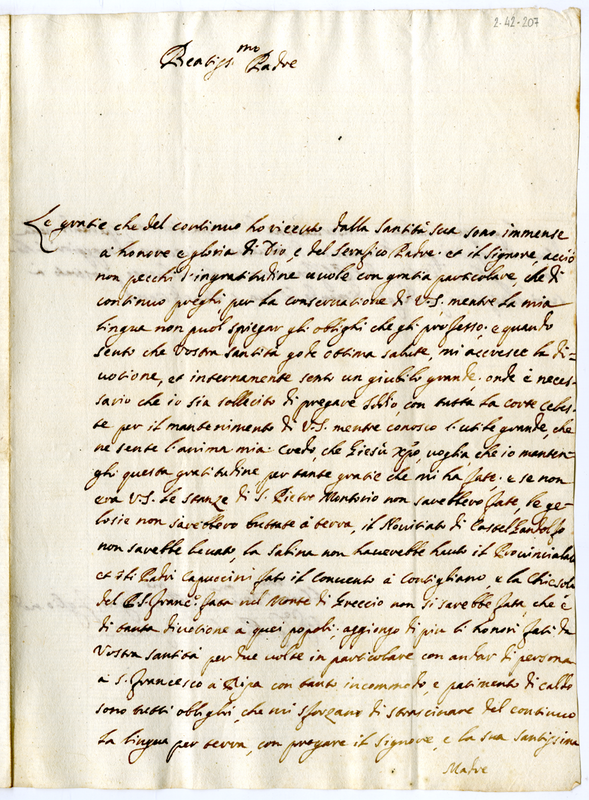 2-42-207
Beatiss.mo Padre
Le gratie che del continuo ho riceuto dalla Santità sua sono immense
à honore e gloria di Dio, e del Serafico Padre. et il Signore, acciò
non pecchi d'ingratitudine uuole con gratia particolare, che di
continuo preghi, per la conseruatione di V.S. mentre la mia
lingua non puol spiegar gli oblighi che gli professo. e quando
sento che Vostra Santità gode ottima salute, mi accresce la di=
uotione, et internamente sento un giubilo grande. onde è neces-
sario che io sia sollecito di pregare Iddio, con tutta la corte celes-
te per il mantenimento di V.S. mentre conosco l'utile grande, che
ne sente l'anima mia. Credo, che Giesù Xpo, uoglia, che io manten-
ghi questa gratitudine per tante gratie che mi hà fate. e se non
era V.S. le stanze di S. Pietro Montorio non sarebbero fate, le ge-
losie non sarebbero buttate à terra, il Nouitiato di Castel Gandolfo
non sarebbe leuato, la Sabina non hauerebbe hauto il Prouincialato
et gli Padri Capuccini fato il Conuento à Contigliano, e la Chiesola
del P.S. Franc.o fata nel Monte di Greccio non si sarebbe fata, che è
di tanta diuotione a quei popoli. aggiongo di piu li honori fati da
Vostra Santità per due uolte in particolare con andar di persona
à S. Francesco à Ripa con tanto incommodo, e patimento di caldo
sono tutti oblighi, che mi sforzano di strascinare del continuo
la lingua per terra, con pregare il Signore, e la sua Santissima
Madre